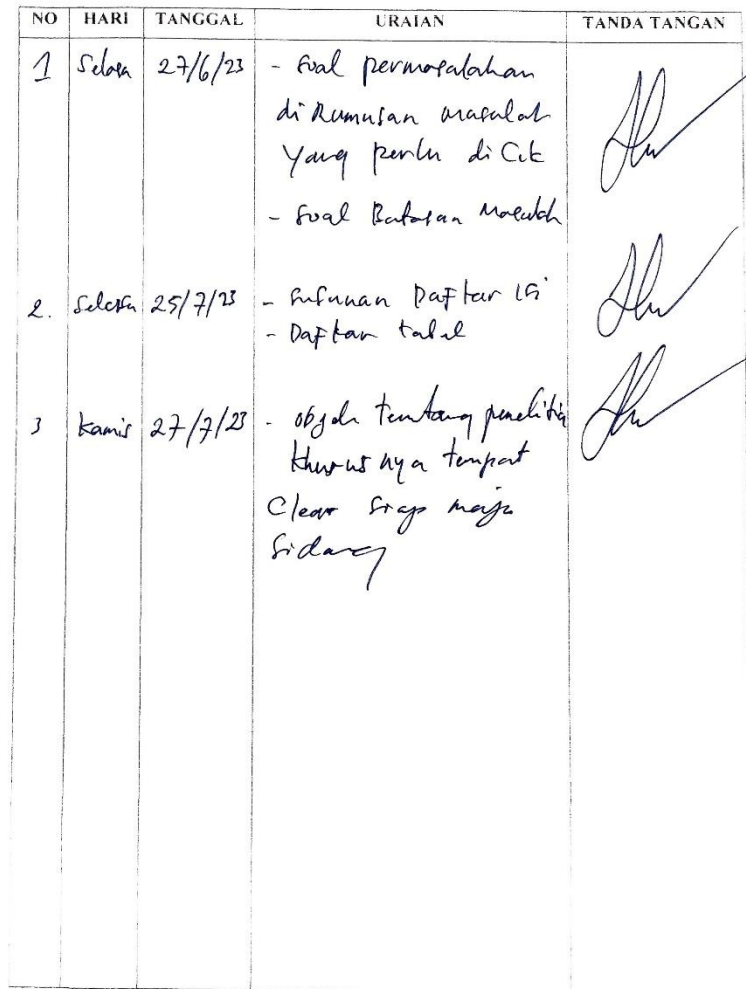 NO HARI TANGGAL URAIAN TANDA TANGAN
1 Selasa 27/6/23 - Soal permasalahan
di Rumusan masalah
Yang perlu di Cek
- Soal Batasan Masalah
2. Selasa 25/7/23 - Susunan Daftar isi
- Daftar tabel
3 Kamis 27/7/23 - objek tentang penelitian
khususnya tempat
Clear Siap maju
Sidang